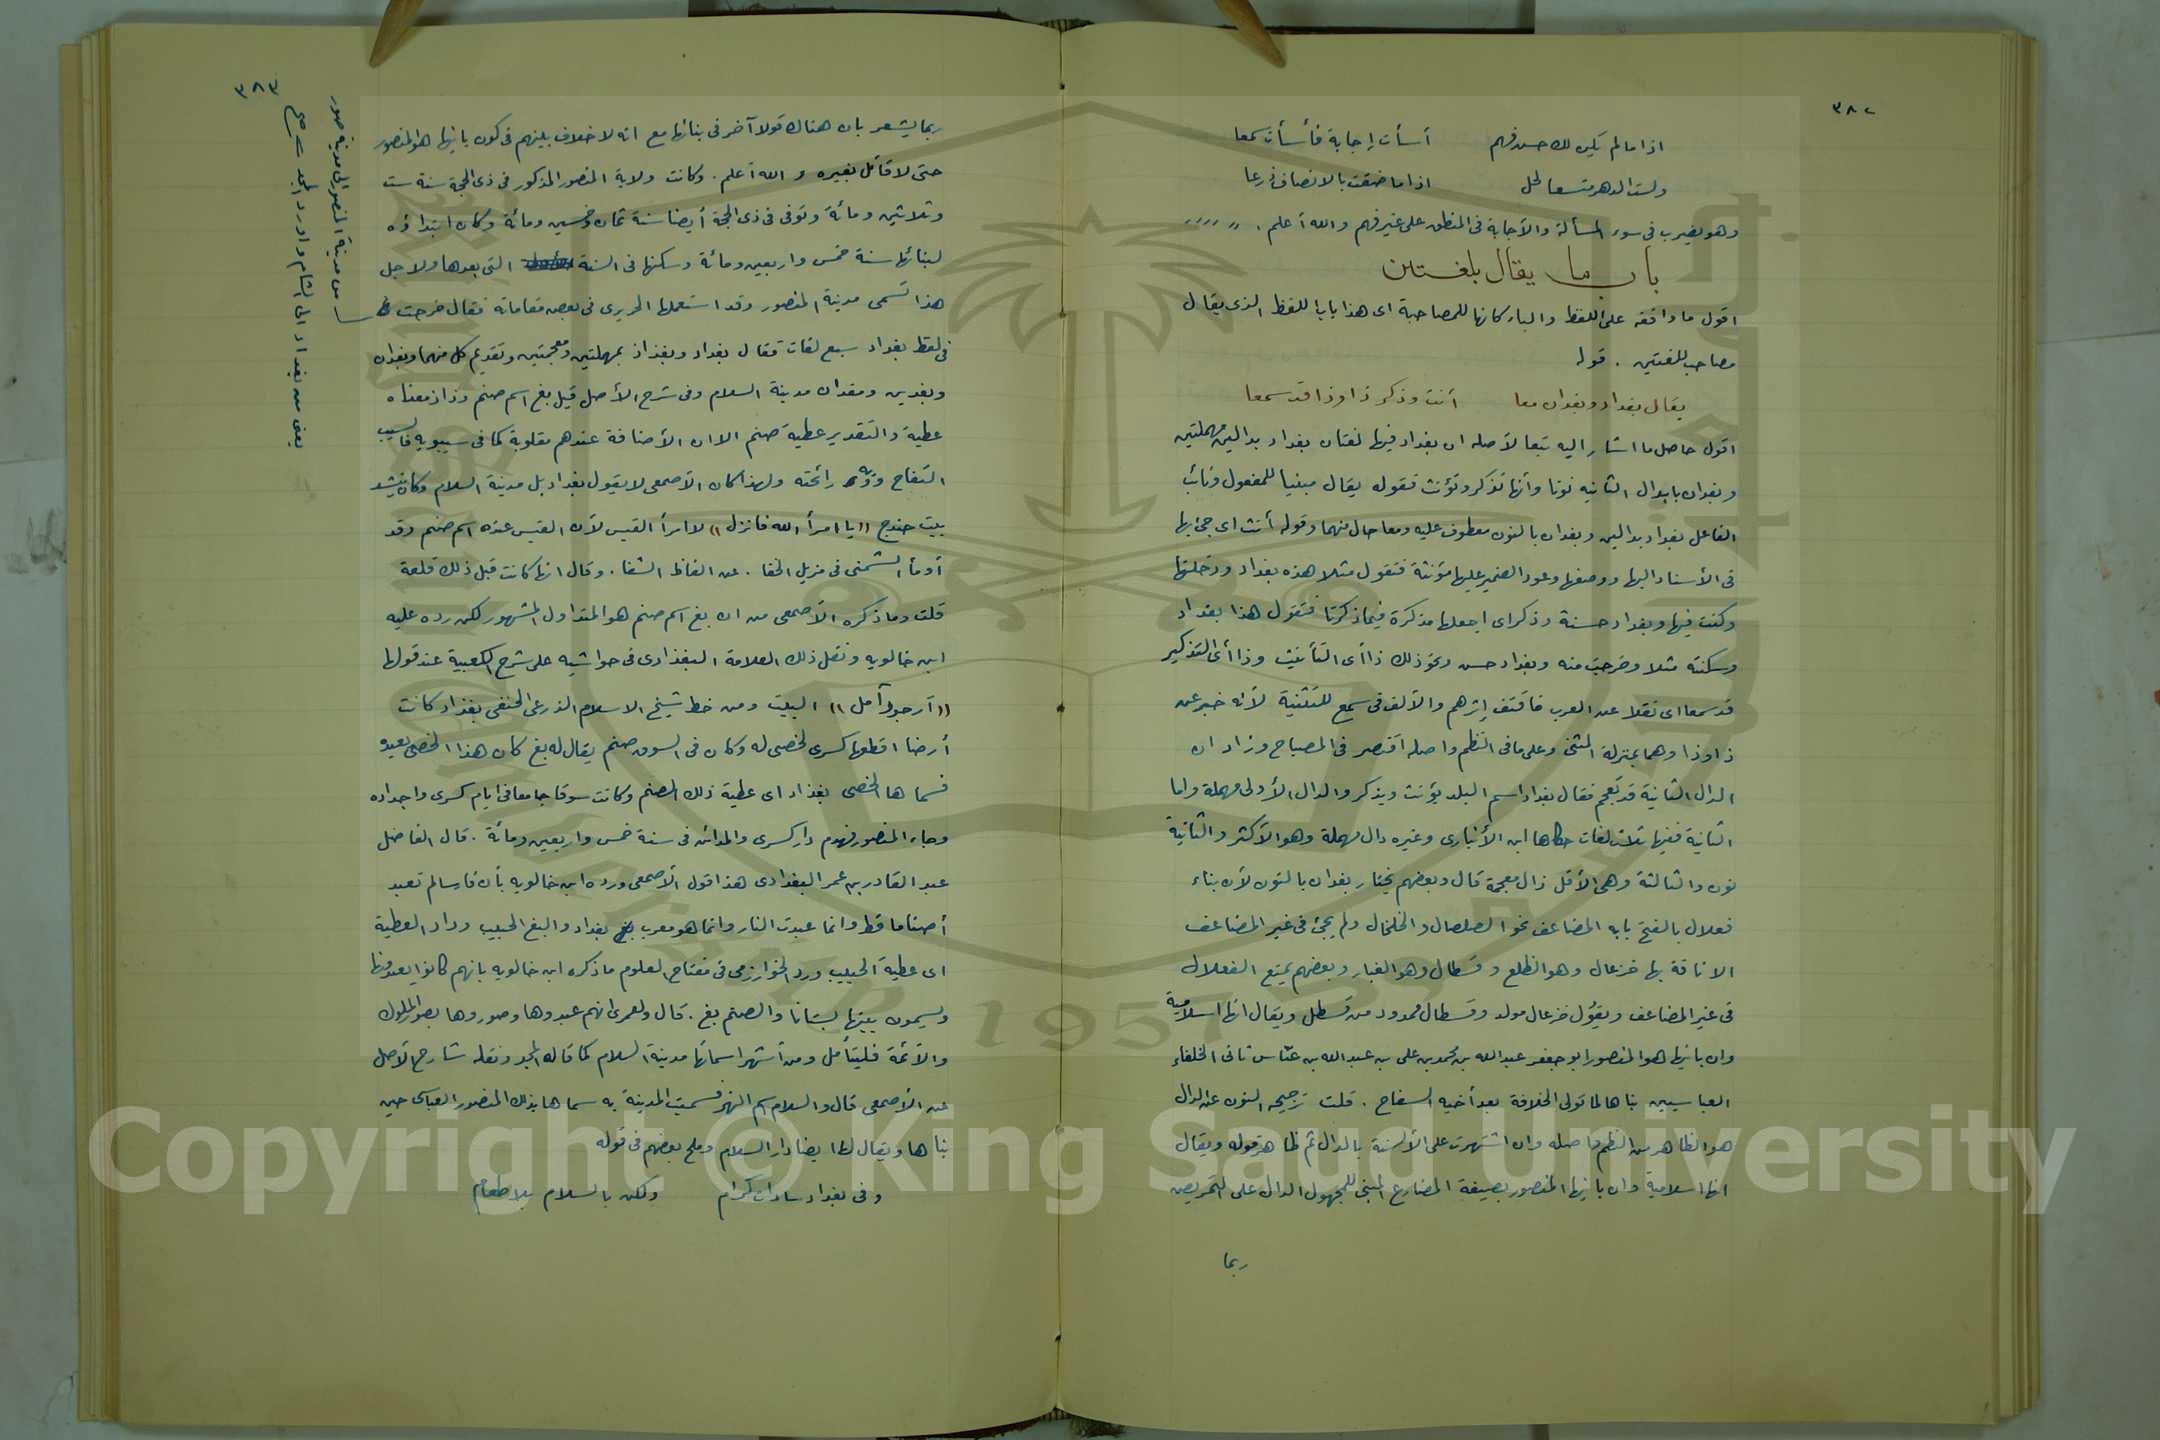 ٣٨٢
اذا ما لم يكن لك حسن فهم أسأت إجابة فأسأت سمعا
ولست الدهر متسعا لحل اذا ما ضقت بالانصاف ذرعا
وهو يضرب فى سوء المسألة والأجابة فى المنطق على غير فهم والله أعلم .
باب ما يقال بلغتين
اقول ما وافقه على اللفظ والباء كانها للمصاحبة اى هذا باب اللفظ الذى يقال
مصاحب للغتين . قوله
يقال بغداد وبغدان معا أنث وذكر ذا وذا قد سمعا
اقول حاصل ما اشار اليه تبعا لأصله ان بغداد فيها لغتان بغداد بدالين مهملتين
وبغدان بابدال الثانيه نونا وأنها تذكر وتؤنث فقوله يقال مبنيا للمفعول ونائب
الفاعل بغداد بدالين وبغدان بالنون معطوف عليه ومعا حال منهما وقوله أنث اى جئ بها
فى الأسناد اليها ووصفها وعود الضمير عليها مؤنثة فتقول مثلا هذه بغداد ودخلتها
وكنت فيها وبغداد حسنة وذكر اى اجعلها مذكرة فيما ذكرنا فتقول هذا بغداد
وسكنته مثلا وخرجت منه وبغداد حسن ونحو ذلك ذا أى التأنيث وذا أى التذكير
قد سمعا اى نقلا عن العرب فاقتف إثرهم والألف فى سمع للتثنية لأنه خبر عن
ذا وذا وهما بمنزلة المثنى وعلى ما فى النظم واصله اقتصر فى المصباح وزاد ان
الدال الثانية قد تعجم فقال بغداد اسم البلد يؤنث ويذكر والدال الأولى مهملة واما
الثانية ففيها ثلاث لغات حكاها ابن الأنبارى وغيره دال مهملة وهو الأكثر والثانية
نون والثالثة وهى الأقل ذال معجمة قال وبعضهم يختار بغدان بالنون لأن بناء
فعلال بالفتح بابه المضاعف نحو الصلصال والخلخال ولم يجئ فى غير المضاعف
الا ناقة بها خزعال وهو الظلع وقسطال وهو الغبار وبعضهم يمنع الفعلال
فى غير المضاعف ويقول خزعال مولد وقسطال ممدود من قسطل ويقال انها اسلامية
وان بانيها هو المنصور ابو جعفر عبدالله بن محمد بن على بن عبدالله بن عباس ثانى الخلفاء
العباسيين بناها لما تولى الخلافة بعد أخيه السفاح . قلت ترجيحه النون عن الدال
هو الظاهر من النظم واصله وان اشتهرت على الألسنة بالدال ثم ظاهر قوله ويقال
انها اسلامية وان بانيها المنصور بصيغة المضارع المبنى للمجهول الدال على التمريض
ربما
٣٨٣
ربما يشعر بان هناك قولا آخر فى بنائها مع انه لا خلاف بينهم فى كون بانيها هو المنصور
حتى لا قائل بغيره والله أعلم . وكانت ولاية المنصور المذكور فى ذى الحجة سنة ست
وثلاثين ومائة وتوفى فى ذى الحجة أيضا سنة ثمان وخمسين ومائة وكان ابتداؤه
لبنائها سنة خمس واربعين ومائة وسكنها فى السنة التى بعدها ولاجل
هذا تسمى مدينة المنصور وقد استعملها الحريرى فى بعض مقاماته فقال خرجت
فى لفظ بغداد سبع لغات فقال بغداد وبغذاذ بمهملتين ومعجمتين وتقديم كل منهما وبغدان
وبغدين ومغدان مدينة السلام وفى شرح الأصل قيل بغ اسم صنم وداذ معناه
عطية والتقدير عطية صنم الا ان الأضافة عندهم مقلوبة كما فى سيبويه فالسيب
التفاح وويه رائحته ولهذا كان الأصمعى لا يقول بغداد بل مدينة السلام وكان ينشد
بيت حندج (( يا امرأ الله فانزل )) لا امرأ القيس لأن القيس عنده اسم صنم وقد
أومأ الشمنى فى مزيل الخفا . عن الفاظ الشفا . وقال انها كانت قبل ذلك قلعة
قلت وما ذكره الأصمعى من ان بغ اسم صنم هو المتداول المشهور لكن رده عليه
ابن خالويه ونقل ذلك العلامة البغدادى فى حواشيه على شرح الكعبية عند قولها
(( أرجو وآمل )) البيت ومن خط شيخ الاسلام الذرعى الحنفى بغداد كانت
أرضا اقطعها كسرى لخصى له وكان فى السوق صنم يقال له بغ كان هذا الخصى يعبده
فسماها الخصى بغداد اى عطية ذلك الصنم وكانت سوقا جامعا فى ايام كسرى واجداده
وجاء المنصور فهدم دار كسرى والمدائن فى سنة خمس واربعين ومائة . قال الفاضل
عبدالقادر بن عمر البغدادى هذا قول الأصمعى ورده ابن خالويه بأن فارسا لم تعبد
أصناما قط وانما عبدت النار وانما هو معرب بغ بغداد والبغ الحبيب وداد العطية
اى عطية الحبيب ورد الخوارزمى فى مفتاح العلوم ما ذكره ابن خالويه بانهم كانوا يعبدونها
ويسمون بيتها بستانا والصنم بغ . قال ولعمرى انهم عبدوها وصوروها بصور الملوك
والأئمة فليتأمل ومن أشهر اسمائها مدينة السلام كما قاله المجد ونقله شارح الأصل
عن الأصمعى قال والسلام اسم النهر فسميت المدينة به سماها بذلك المنصور العباسى حين
بناها ويقال لها ايضا دار السلام وملح بعضهم فى قوله
وفى بغداد سادات كرام ولكن بالسلام بلا طعام
من مدينة المنصور الى مدينة صور
يعنى من بغداد الى الشام واورد المجد صح
Copyright © King Saud University
1957